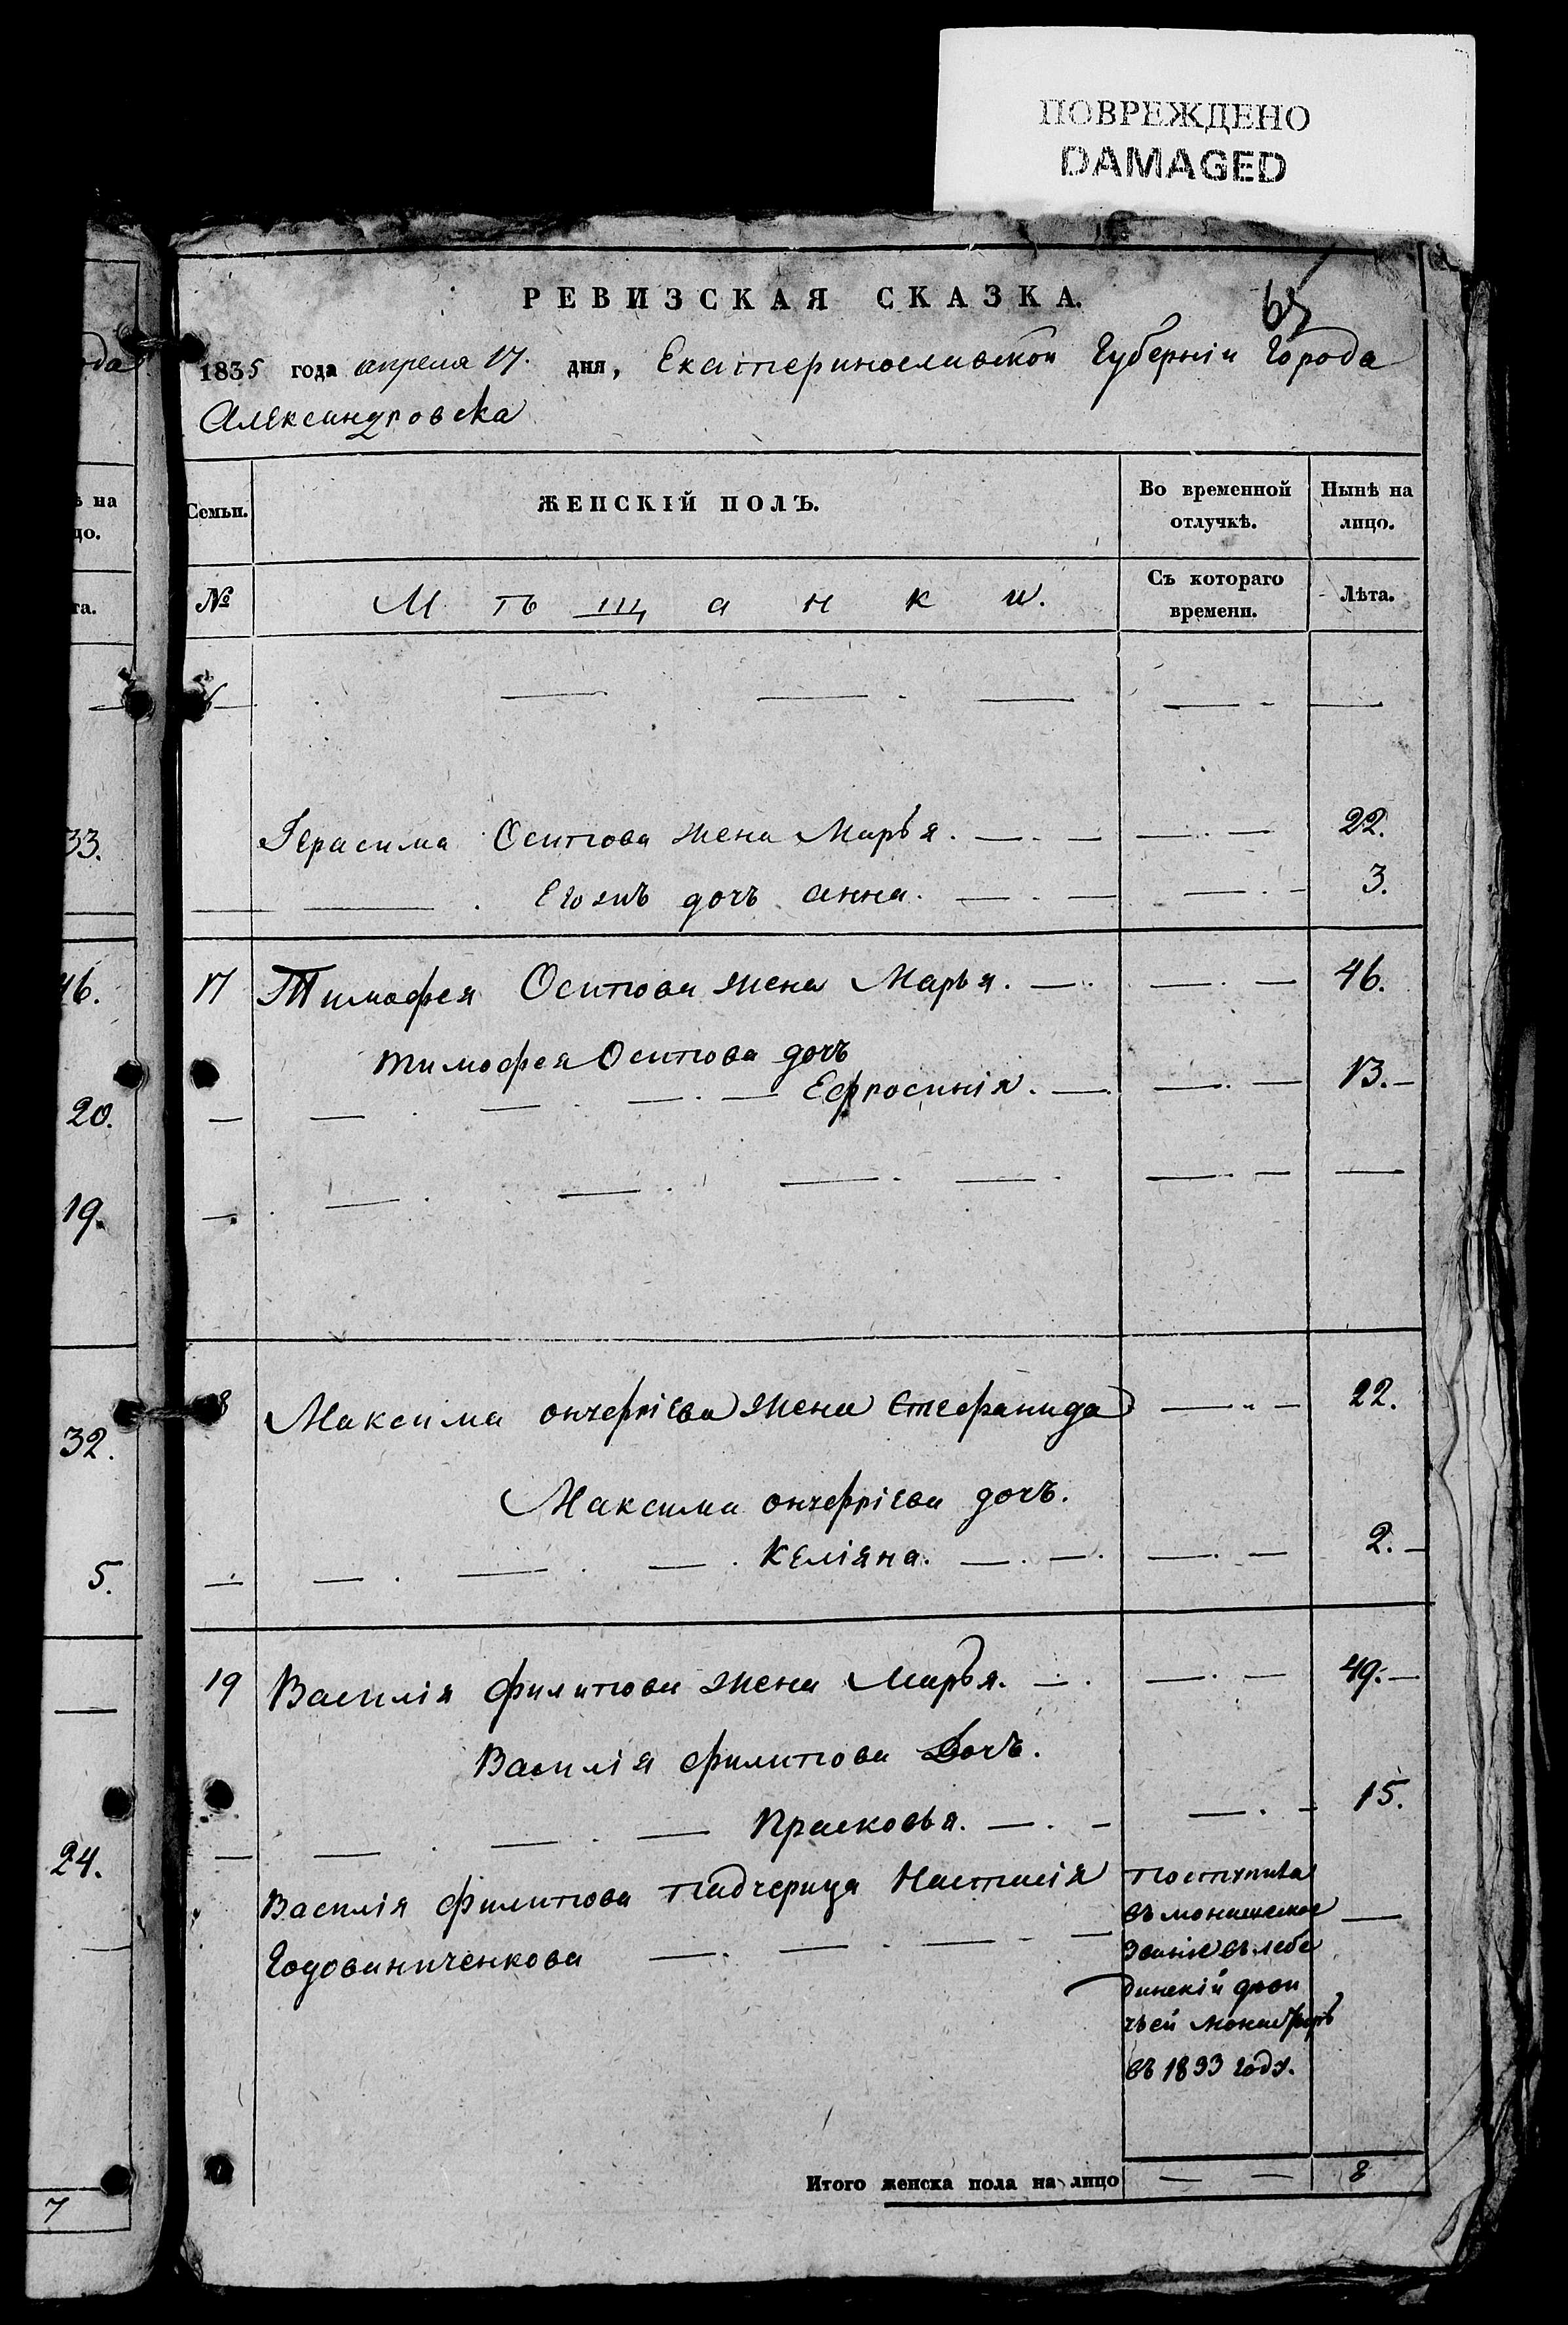 ПОВРЕЖДЕНО
DAMAGED
РЕВИЗСКАЯ СКАЗКА.
65
1835 года апреля 17. дня, Екатеринославской Губерніи Города
Александровска
Семьи.
ЖЕНСКІЙ ПОЛЪ.
Во временной отлучкѣ.
Нынѣ на лицо.
№
Мѣщанки.
Съ котораго времени.
Лѣта.
Герасима Осипова жена Марья. 22.
Его жъ дочъ анна. 3.
17 Тимофея Осипова жена Марья. 46.
Тимофея Осипова дочъ
Ефросинія. 13.
18 Максима ончефріева жена Стефанида 22.
Максима ончефріева дочъ.
Келіяна. 2.
19 Василія филипова жена Марья. 49.
Василія филипова Дочъ.
Прасковья. 15.
Василія филипова падчерица Настасія
Годованиченкова
поступила
въ монашеское
званіе въ лебе
динскій деви
чьей монастырь
въ 1833 году.
Итого женска пола на лицо 8
ода
ѣ на
цо.
та.
33.
46.
20.
19.
32.
5.
24.
7